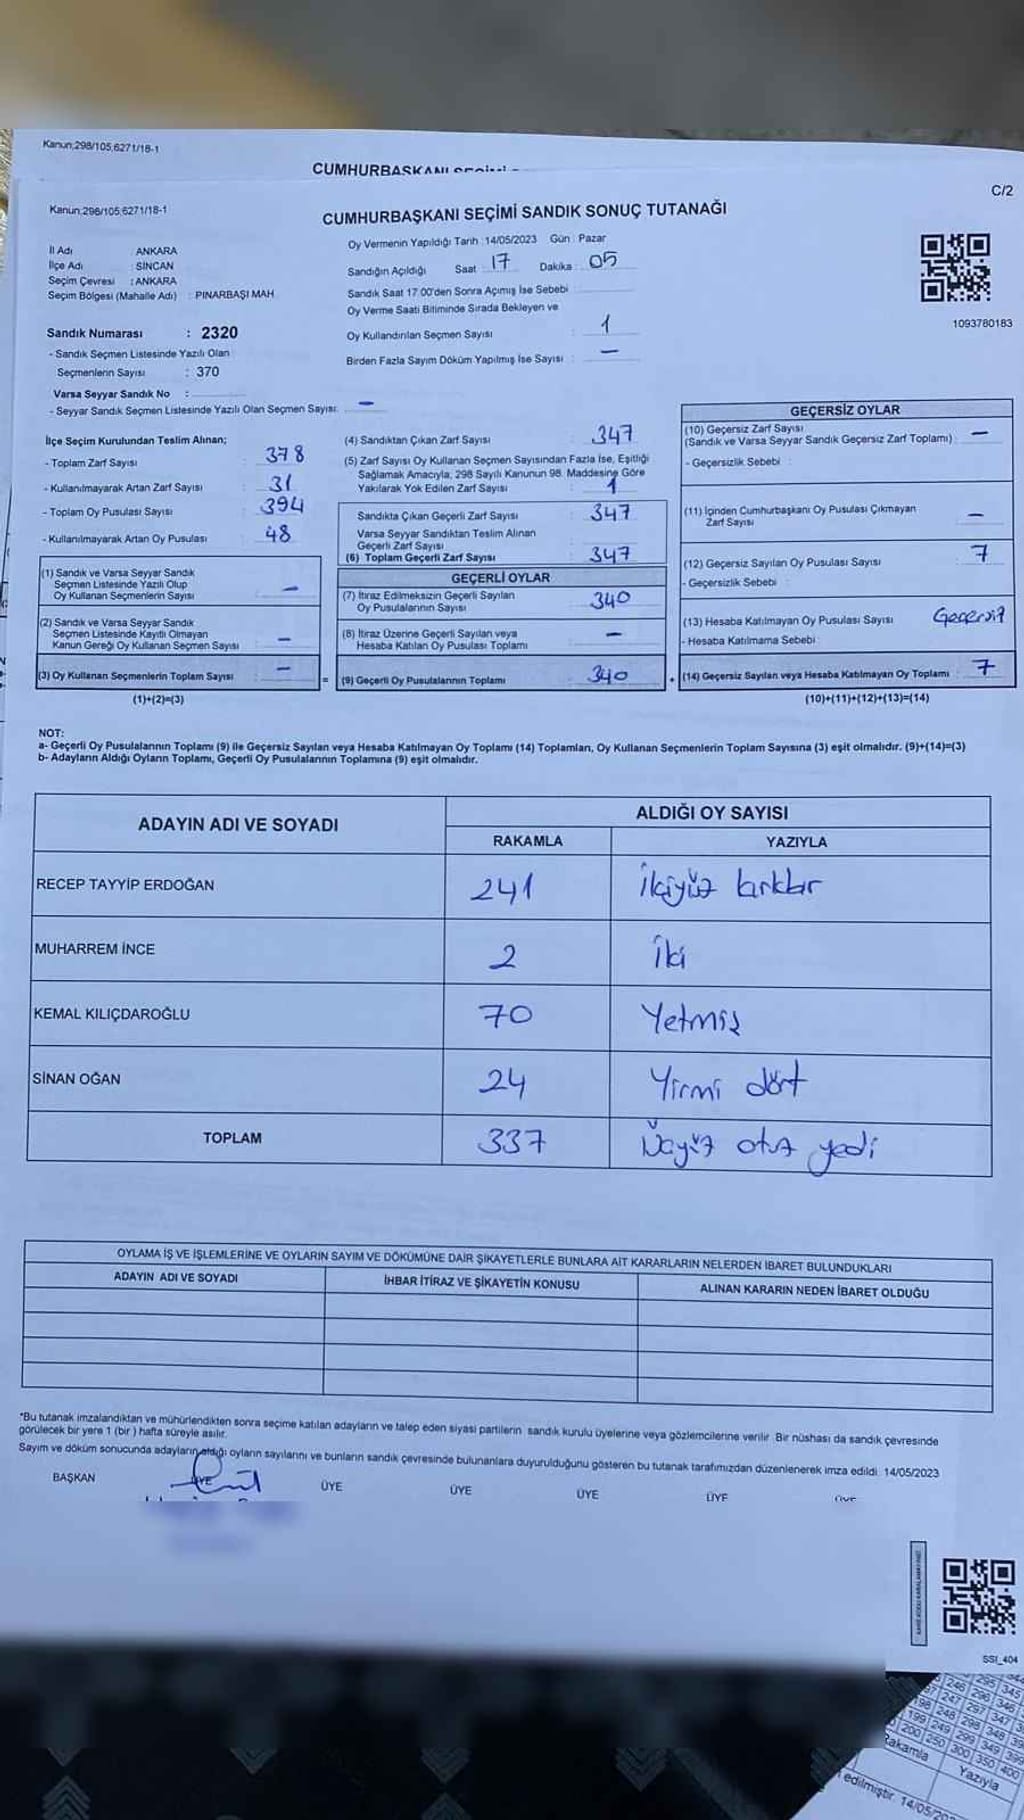 Kanun;298/105,6271/18-1
CUMHURBAŞKANI
C/2
Kanun:298/105,6271/18-1
CUMHURBAŞKANI SEÇİMİ SANDIK SONUÇ TUTANAĞI
İl Adı : ANKARA
İlçe Adı : SİNCAN
Seçim Çevresi : ANKARA
Seçim Bölgesi (Mahalle Adı) : PINARBAŞI MAH
Oy Vermenin Yapıldığı Tarih :14/05/2023 Gün : Pazar
Sandığın Açıldığı Saat : 17 Dakika : 05
Sandık Saat 17:00'den Sonra Açımış İse Sebebi :
Oy Verme Saati Bitiminde Sırada Bekleyen ve
Oy Kullandırılan Seçmen Sayısı : 1
Birden Fazla Sayım Döküm Yapılmış İse Sayısı : –
1093780183
Sandık Numarası : 2320
- Sandık Seçmen Listesinde Yazılı Olan
Seçmenlerin Sayısı : 370
Varsa Seyyar Sandık No :
- Seyyar Sandık Seçmen Listesinde Yazılı Olan Seçmen Sayısı: –
İlçe Seçim Kurulundan Teslim Alınan;
- Toplam Zarf Sayısı : 378
- Kullanılmayarak Artan Zarf Sayısı : 31
- Toplam Oy Pusulası Sayısı : 394
- Kullanılmayarak Artan Oy Pusulası : 48
(1) Sandık ve Varsa Seyyar Sandık
Seçmen Listesinde Yazılı Olup
Oy Kullanan Seçmenlerin Sayısı : –
(2) Sandık ve Varsa Seyyar Sandık
Seçmen Listesinde Kayıtlı Olmayan
Kanun Gereği Oy Kullanan Seçmen Sayısı : –
(3) Oy Kullanan Seçmenlerin Toplam Sayısı : –
(1)+(2)=(3)
(4) Sandıktan Çıkan Zarf Sayısı : 347
(5) Zarf Sayısı Oy Kullanan Seçmen Sayısından Fazla İse, Eşitliği
Sağlamak Amacıyla, 298 Sayılı Kanunun 98. Maddesine Göre
Yakılarak Yok Edilen Zarf Sayısı : 1
Sandıkta Çıkan Geçerli Zarf Sayısı : 347
Varsa Seyyar Sandıktan Teslim Alınan
Geçerli Zarf Sayısı :
(6) Toplam Geçerli Zarf Sayısı : 347
GEÇERLİ OYLAR
(7) İtiraz Edilmeksizin Geçerli Sayılan
Oy Pusulalarının Sayısı : 340
(8) İtiraz Üzerine Geçerli Sayılan veya
Hesaba Katılan Oy Pusulası Toplamı : –
= (9) Geçerli Oy Pusulalarının Toplamı : 340
GEÇERSİZ OYLAR
(10) Geçersiz Zarf Sayısı
(Sandık ve Varsa Seyyar Sandık Geçersiz Zarf Toplamı) : –
- Geçersizlik Sebebi :
(11) İçinden Cumhurbaşkanı Oy Pusulası Çıkmayan
Zarf Sayısı : –
(12) Geçersiz Sayılan Oy Pusulası Sayısı : 7
- Geçersizlik Sebebi :
(13) Hesaba Katılmayan Oy Pusulası Sayısı : Geçersiz
- Hesaba Katılmama Sebebi :
+ (14) Geçersiz Sayılan veya Hesaba Katılmayan Oy Toplamı : 7
(10)+(11)+(12)+(13)=(14)
NOT:
a- Geçerli Oy Pusulalarının Toplamı (9) ile Geçersiz Sayılan veya Hesaba Katılmayan Oy Toplamı (14) Toplamları, Oy Kullanan Seçmenlerin Toplam Sayısına (3) eşit olmalıdır. (9)+(14)=(3)
b- Adayların Aldığı Oyların Toplamı, Geçerli Oy Pusulalarının Toplamına (9) eşit olmalıdır.
ADAYIN ADI VE SOYADI
ALDIĞI OY SAYISI
RAKAMLA YAZIYLA
RECEP TAYYİP ERDOĞAN 241 İkiyüz kırkbir
MUHARREM İNCE 2 İki
KEMAL KILIÇDAROĞLU 70 Yetmiş
SİNAN OĞAN 24 Yirmi dört
TOPLAM 337 Üçyüz otuz yedi
OYLAMA İŞ VE İŞLEMLERİNE VE OYLARIN SAYIM VE DÖKÜMÜNE DAİR ŞİKAYETLERLE BUNLARA AİT KARARLARIN NELERDEN İBARET BULUNDUKLARI
ADAYIN ADI VE SOYADI İHBAR İTİRAZ VE ŞİKAYETİN KONUSU ALINAN KARARIN NEDEN İBARET OLDUĞU
*Bu tutanak imzalandıktan ve mühürlendikten sonra seçime katılan adayların ve talep eden siyasi partilerin sandık kurulu üyelerine veya gözlemcilerine verilir. Bir nüshası da sandık çevresinde
görülecek bir yere 1 (bir ) hafta süreyle asılır.
Sayım ve döküm sonucunda adayların aldığı oyların sayılarını ve bunların sandık çevresinde bulunanlara duyurulduğunu gösteren bu tutanak tarafımızdan düzenlenerek imza edildi. 14/05/2023
BAŞKAN ÜYE ÜYE ÜYE ÜYE ÜYE ÜYE
SSI_404
295 345
246 296 346
247 297 347
198 248 298 348
199 249 299 349 399
200 250 300 350 400
Rakamla Yazıyla
edilmiştir. 14/05/20